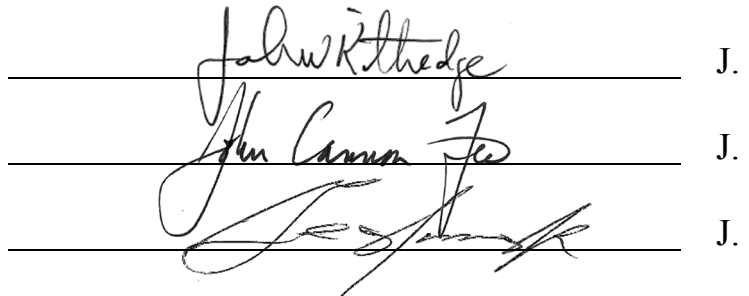 John W Kittredge J.
John Cannon Few J.
J.